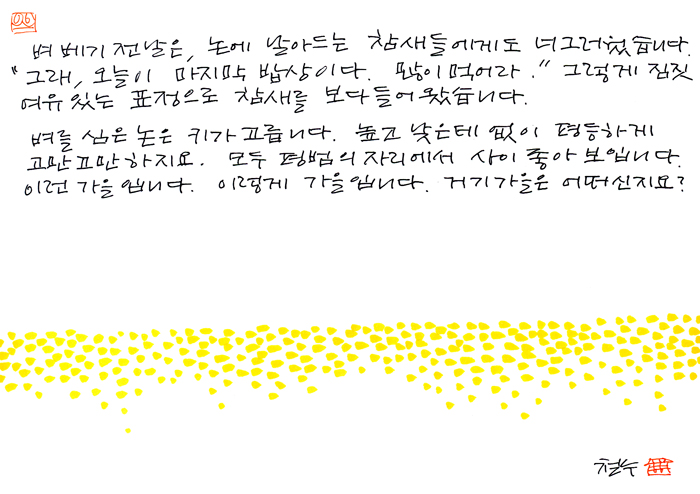 06
벼 베기 전날은, 논에 날아드는 참새들에게도 너그러웠습니다.
"그래, 오늘이 마지막 밥상이다. 많이 먹어라." 그렇게 짐짓
여유 있는 표정으로 참새를 보다 들어왔습니다.
벼를 심은 논은 키가 고릅니다. 높고 낮은데 없이 평등하게
고만고만하지요. 모두 평범의 자리에서 사이 좋아 보입니다.
이런 가을입니다. 이렇게 가을입니다. 거기 가을은 어떠신지요?
철수